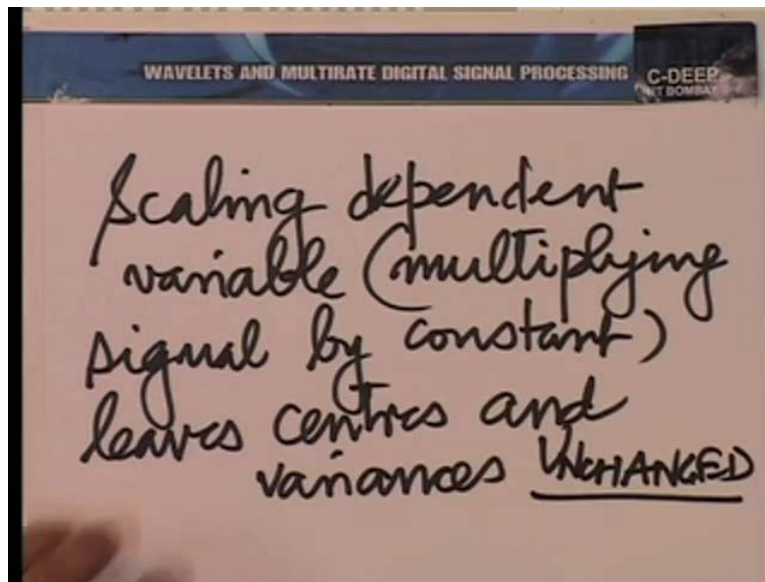 WAVELETS AND MULTIRATE DIGITAL SIGNAL PROCESSING
C-DEEP
IIT BOMBAY
Scaling dependent
variable (multiplying
signal by constant)
leaves centres and
variances UNCHANGED